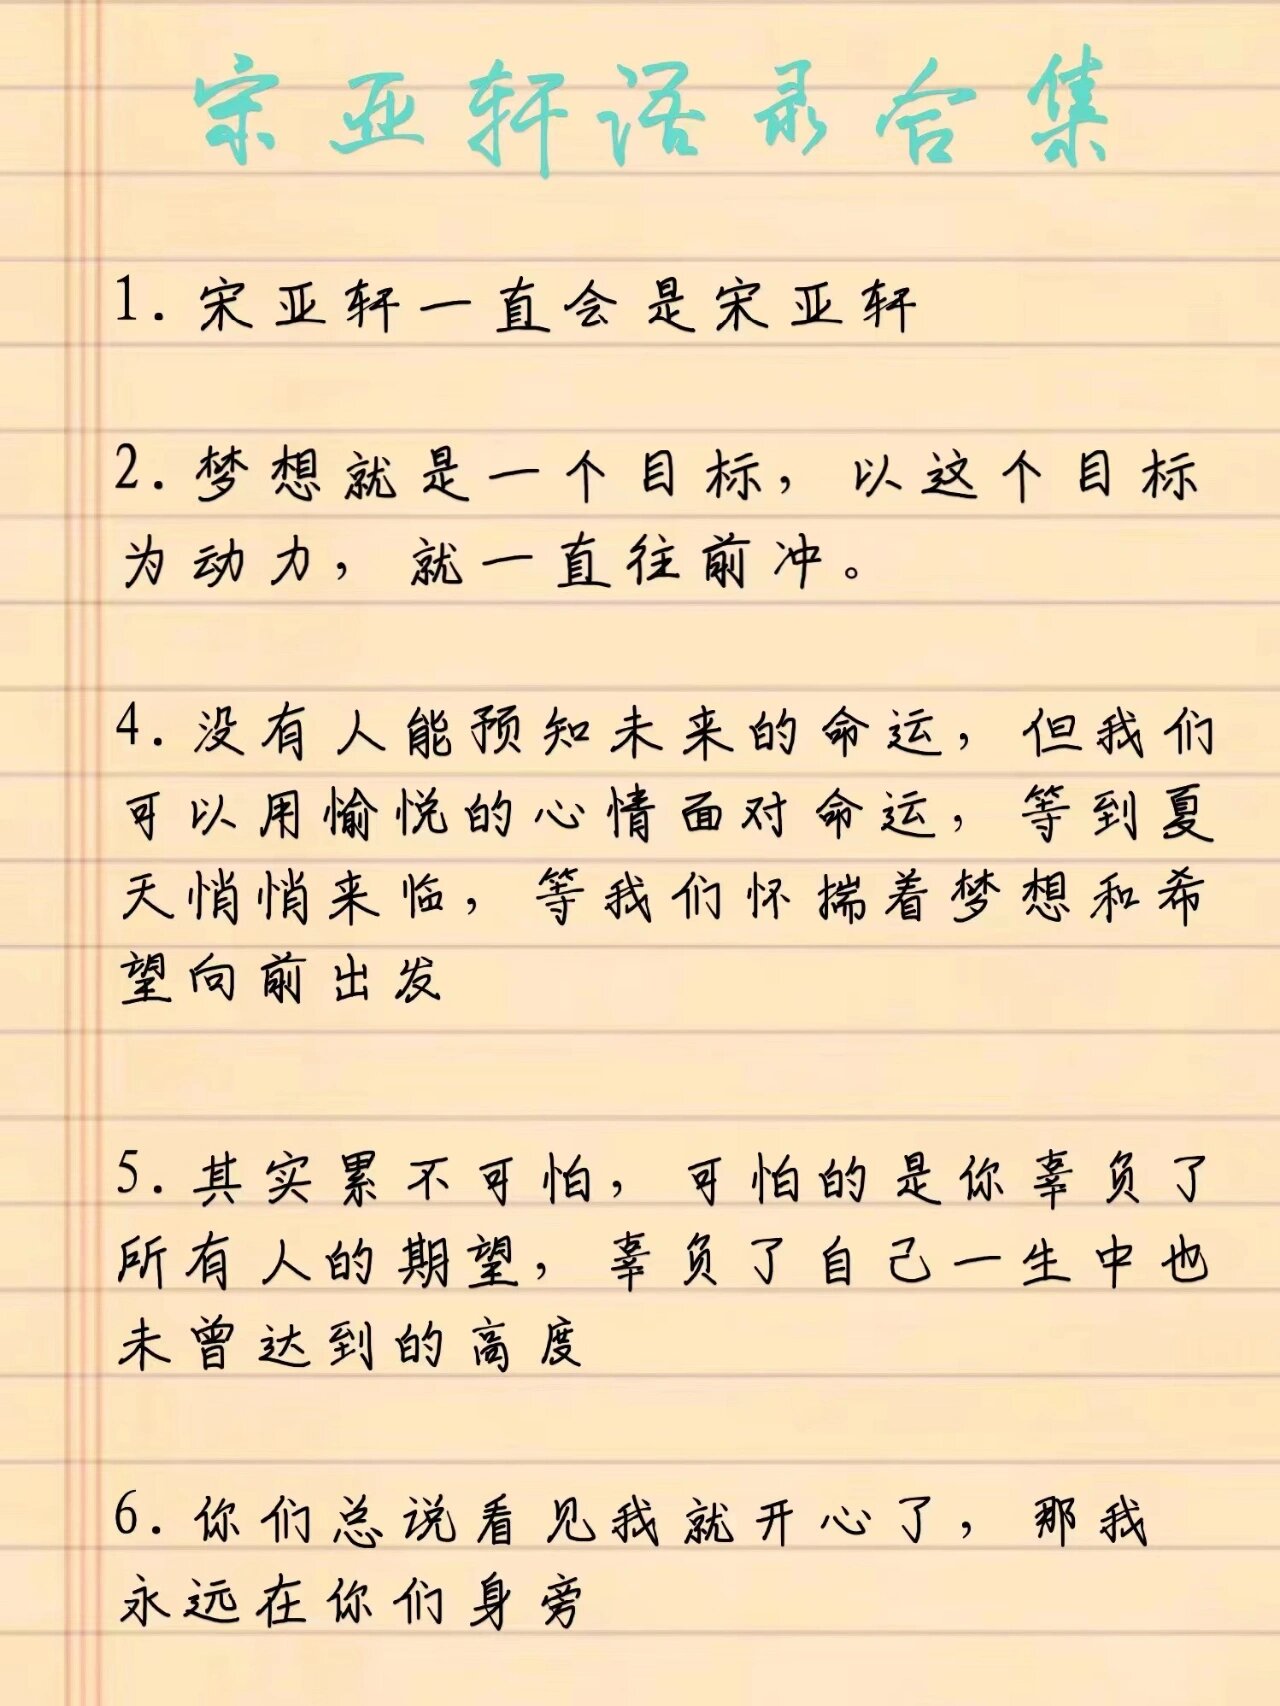 宋亚轩语录合集
1.宋亚轩一直会是宋亚轩
2.梦想就是一个目标，以这个目标
为动力，就一直往前冲。
4.没有人能预知未来的命运，但我们
可以用愉悦的心情面对命运，等到夏
天悄悄来临，等我们怀揣着梦想和希
望向前出发
5.其实累不可怕，可怕的是你辜负了
所有人的期望，辜负了自己一生中也
未曾达到的高度
6.你们总说看见我就开心了，那我
永远在你们身旁